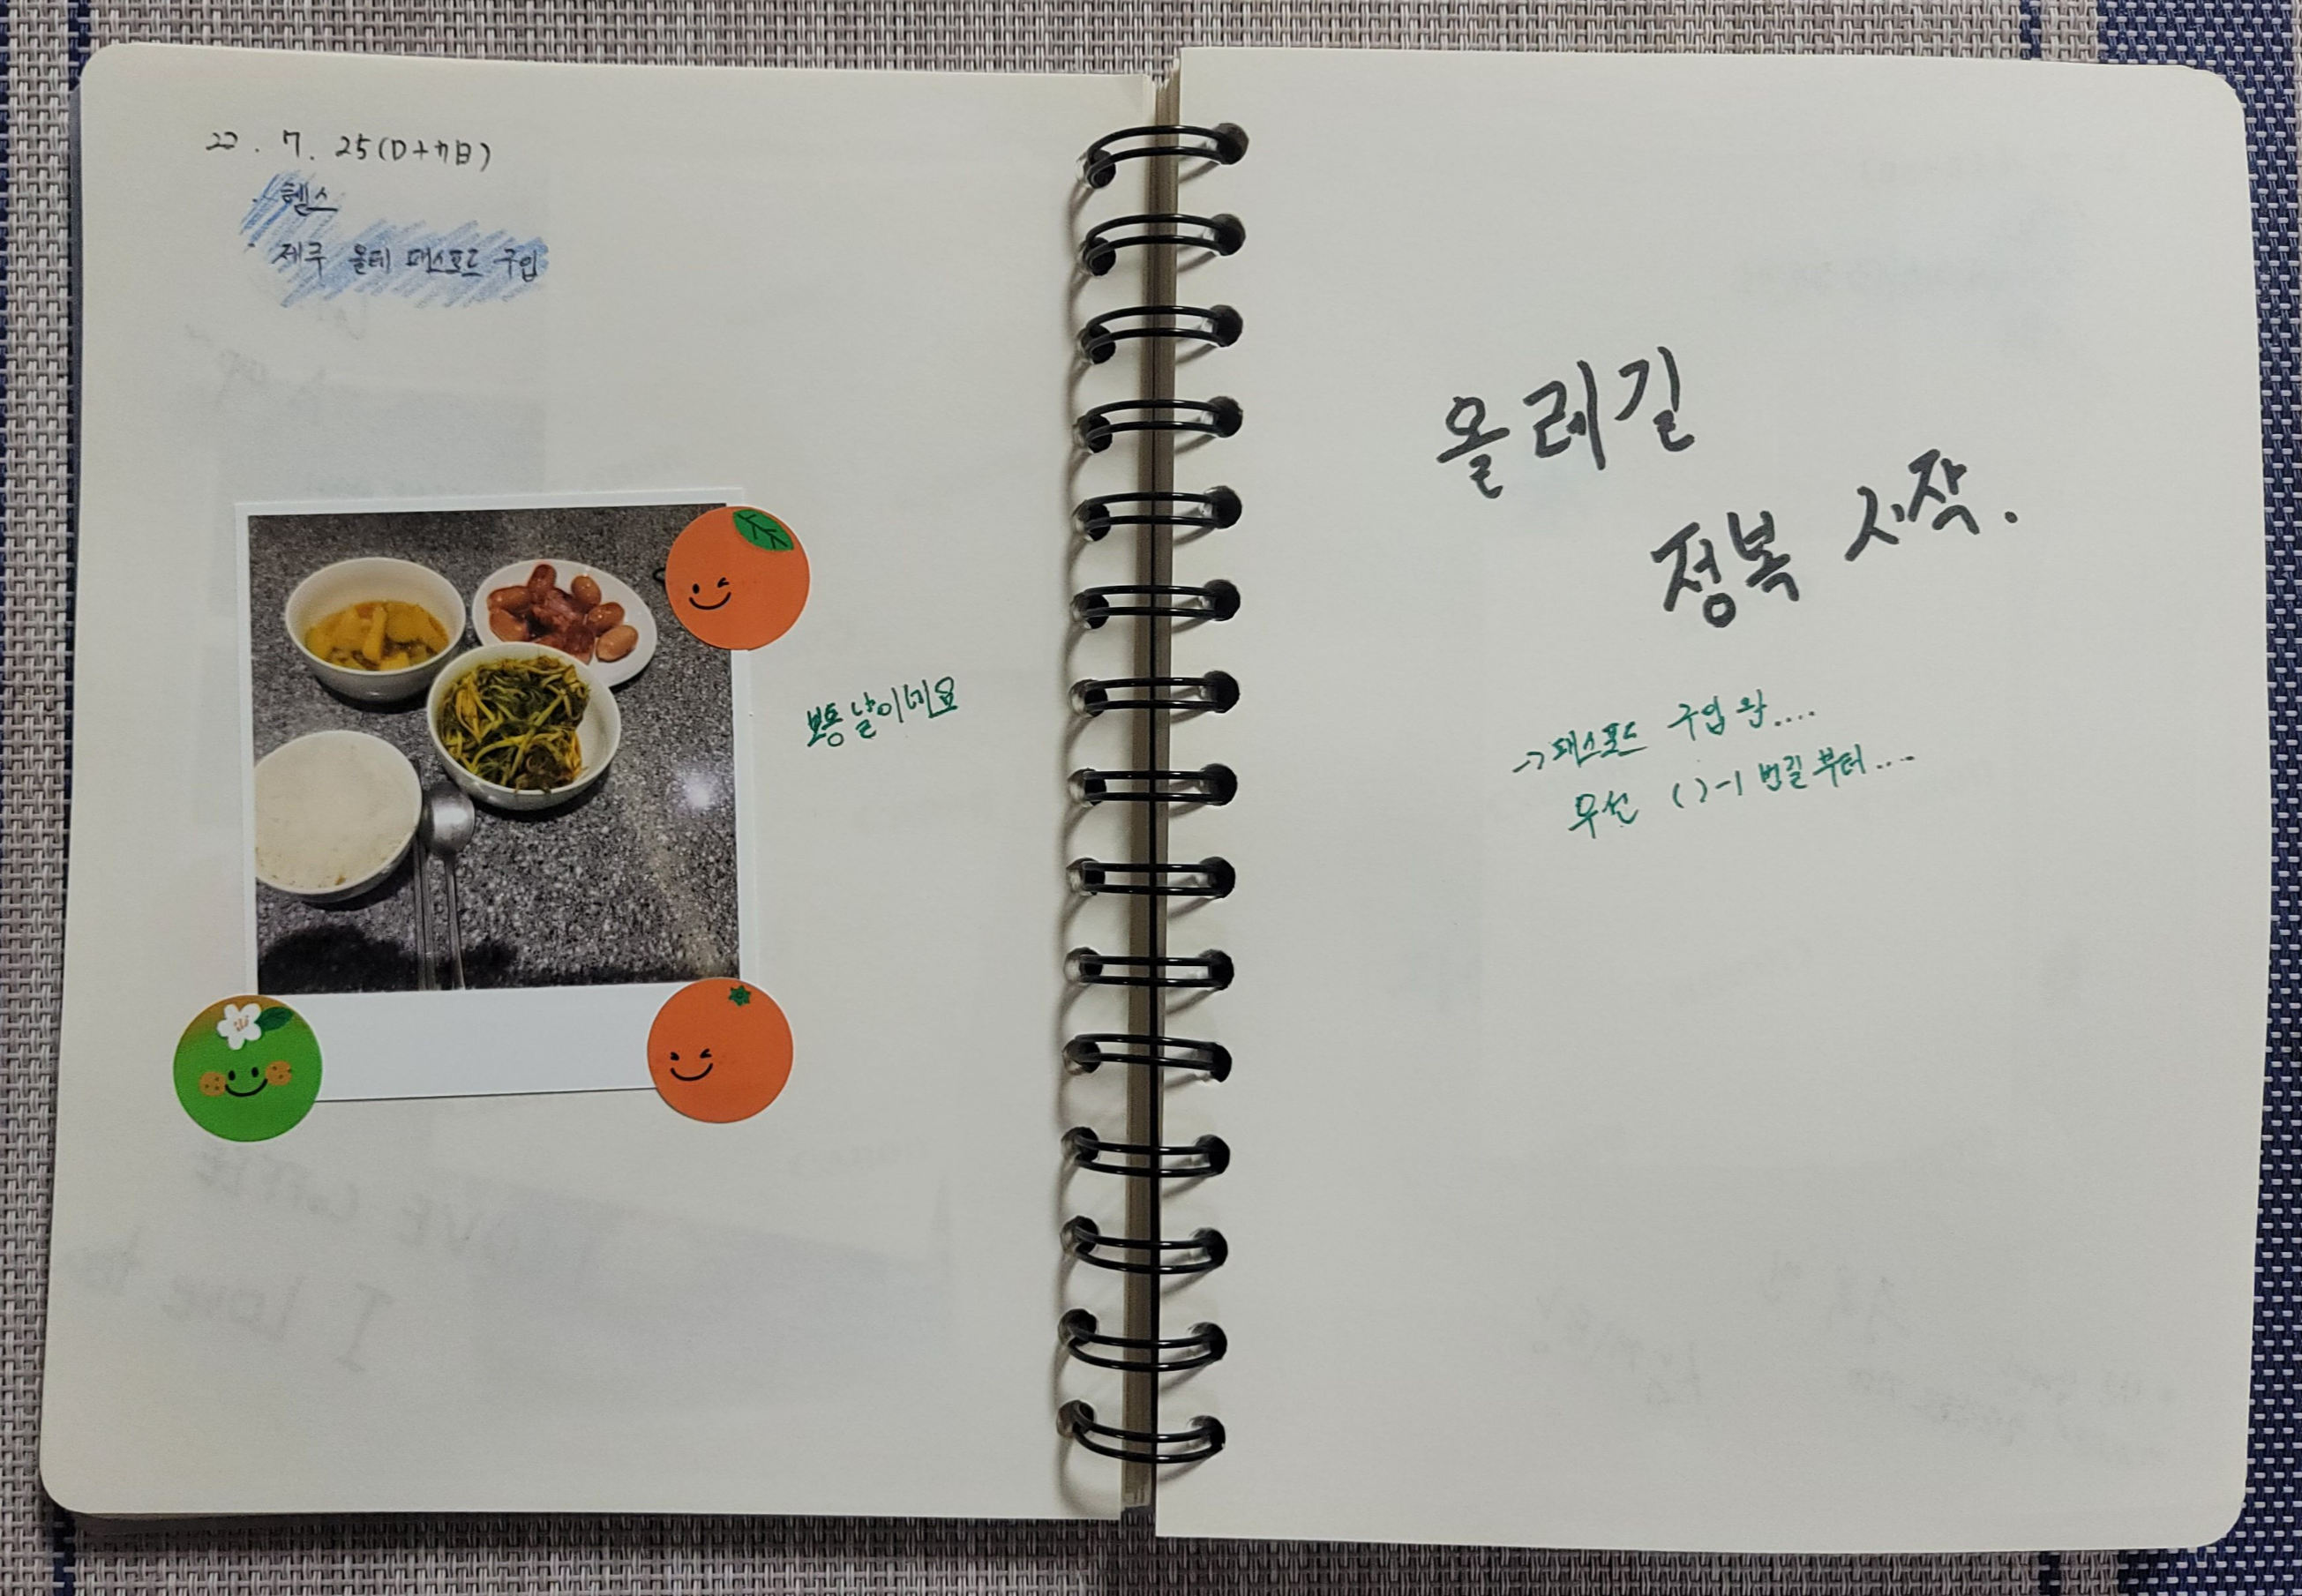 22. 7. 25(D+7日)
· 헬스
· 제주 올레 패스포드 구입
보통 날이네요
올레길
정복 시작.
→ 패스포드 구입 완....
우선 ( )-1 번길 부터...